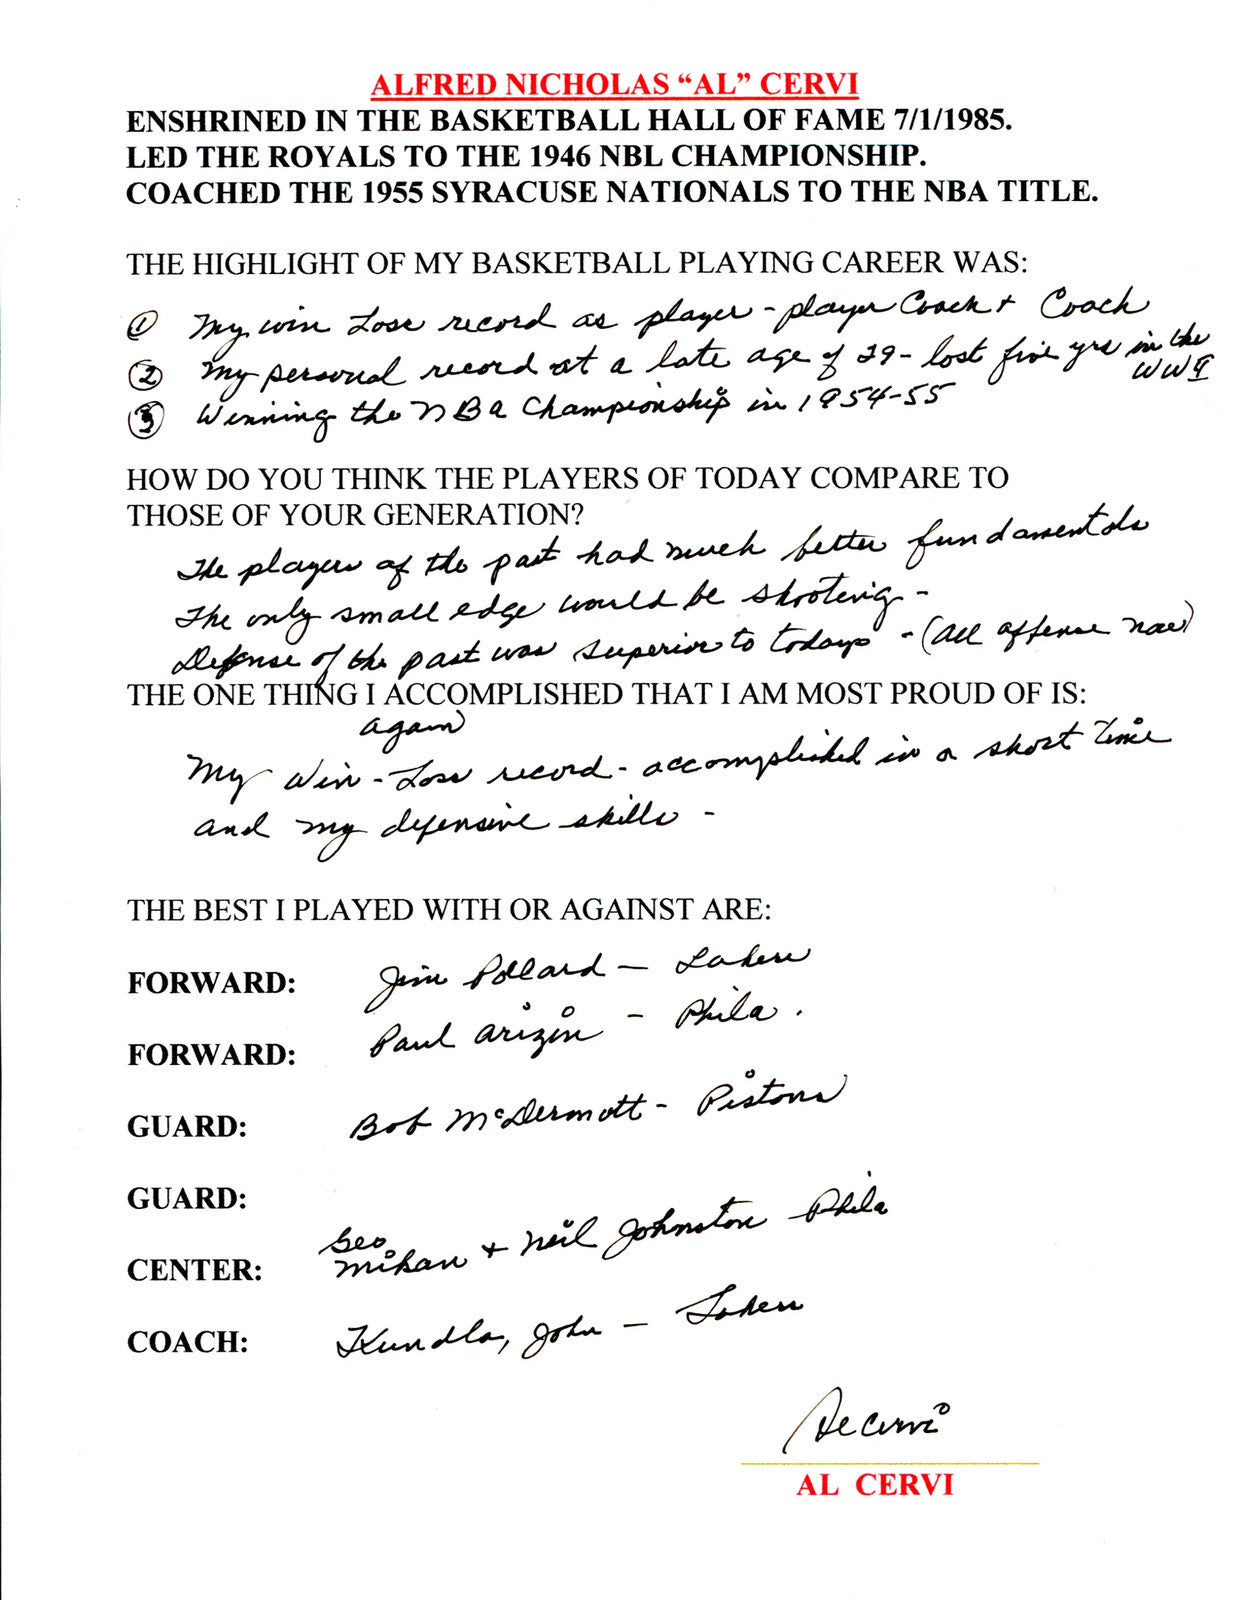 ALFRED NICHOLAS “AL” CERVI
ENSHRINED IN THE BASKETBALL HALL OF FAME 7/1/1985.
LED THE ROYALS TO THE 1946 NBL CHAMPIONSHIP.
COACHED THE 1955 SYRACUSE NATIONALS TO THE NBA TITLE.
THE HIGHLIGHT OF MY BASKETBALL PLAYING CAREER WAS:
① My win Loss record as player - player Coach + Coach
② My personal record at a late age of 29 - lost five yrs in the
WW
③ Winning the NBA Championship in 1954-55
HOW DO YOU THINK THE PLAYERS OF TODAY COMPARE TO
THOSE OF YOUR GENERATION?
The players of the past had much better fundamentals
The only small edge would be shooting -
Defense of the past was superior to todays - (All offense now)
THE ONE THING I ACCOMPLISHED THAT I AM MOST PROUD OF IS:
again
My Win - Loss record - accomplished in a short time
and my defensive skills -
THE BEST I PLAYED WITH OR AGAINST ARE:
FORWARD: Jim Pollard - Lakers
FORWARD: Paul Arizin - Phila.
GUARD: Bob McDermott - Pistons
GUARD:
CENTER: Geo Mikan + Neil Johnston Phila
COACH: Kundla, John - Lakers
Al Cervi
AL CERVI